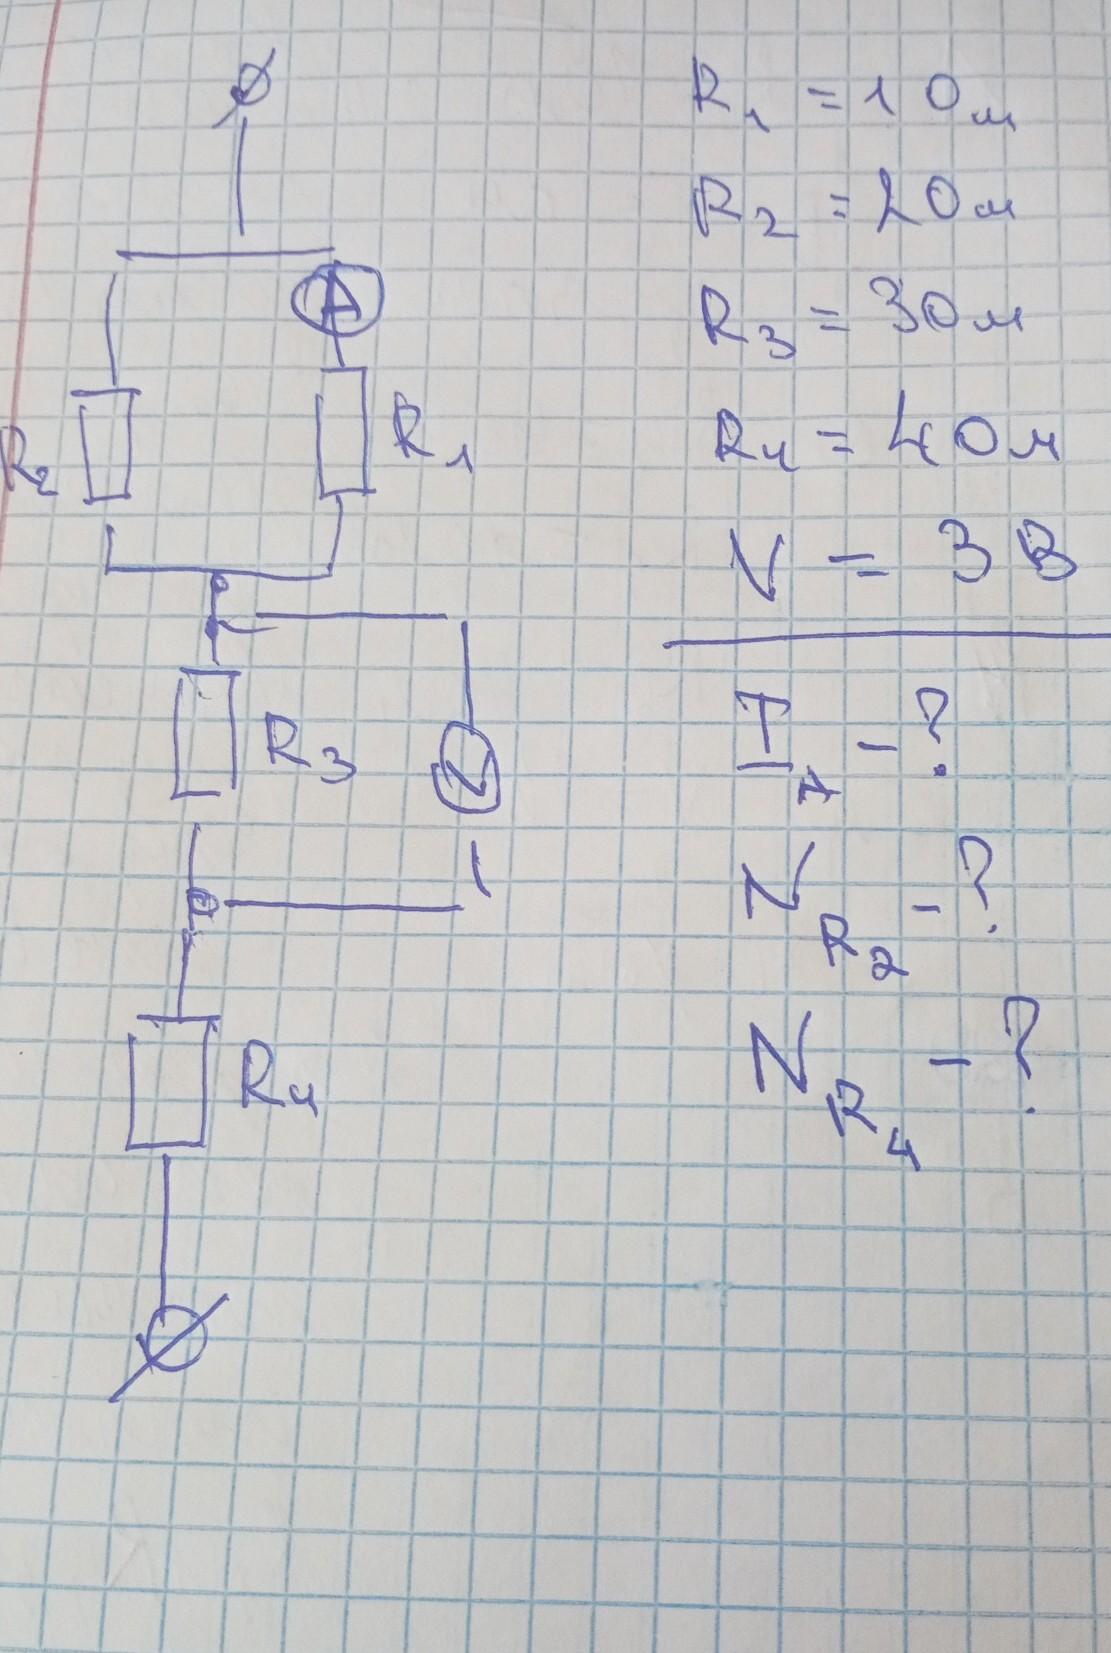 A
R₂
R₁
R₃
V
R₄
R₁ = 1 Ом
R₂ = 2 Ом
R₃ = 3 Ом
R₄ = 4 Ом
V = 3 В
I₁ - ?
V R₂ - ?
V R₄ - ?